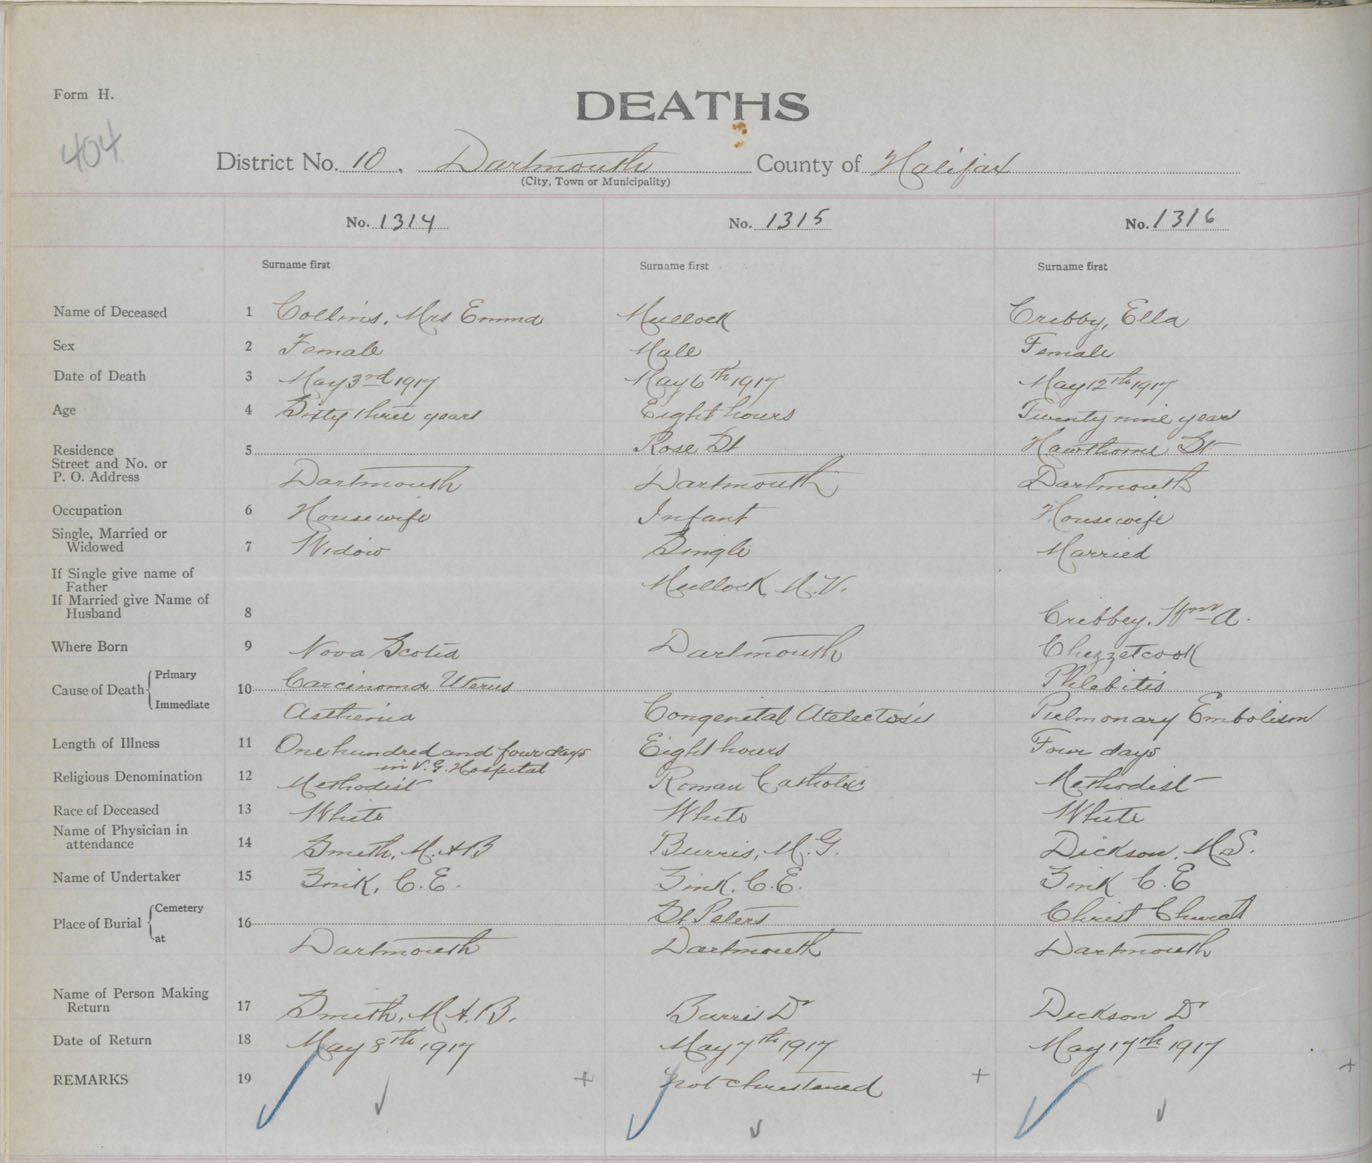 Form H.
DEATHS
404
District No. 10. Dartmouth County of Halifax
(City, Town or Municipality)
No. 1314 No. 1315 No. 1316
Surname first Surname first Surname first
Name of Deceased 1 Collins, Mrs Emma Mullock Cribby, Ella
Sex 2 Female Male Female
Date of Death 3 May 3rd 1917 May 6th 1917 May 12th 1917
Age 4 Sixty three years Eight hours Twenty nine years
Residence 5 Rose St Hawthorne St
Street and No. or
P. O. Address Dartmouth Dartmouth Dartmouth
Occupation 6 Housewife Infant Housewife
Single, Married or
Widowed 7 Widow Single Married
If Single give name of
Father Mullock, A.V.
If Married give Name of
Husband 8 Cribbey, Wm A.
Where Born 9 Nova Scotia Dartmouth Chezzetcook
Cause of Death Primary 10 Carcinoma Uterus Phlebitis
Immediate Asthenia Congenital Atelectosis Pulmonary Embolism
Length of Illness 11 One hundred and four days Eight hours Four days
in V.G. Hospital
Religious Denomination 12 Methodist Roman Catholic Methodist
Race of Deceased 13 White White White
Name of Physician in
attendance 14 Smith, M.A.B Burris, M.G. Dickson, M.S.
Name of Undertaker 15 Zink, C.E. Zink, C.E. Zink C.E
Place of Burial Cemetery 16 St Peters Christ Church
at Dartmouth Dartmouth Dartmouth
Name of Person Making
Return 17 Smith, M.A.B. Burris Dr Dickson Dr
Date of Return 18 May 8th 1917 May 7th 1917 May 17th 1917
REMARKS 19 not christened